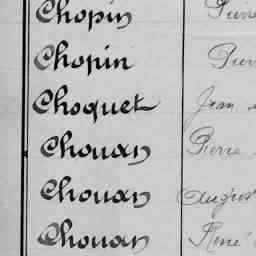 Chopin Pierre
Chopin Pierr
Choquet Jean
Chouan Pierre
Chouan August
Chouan René